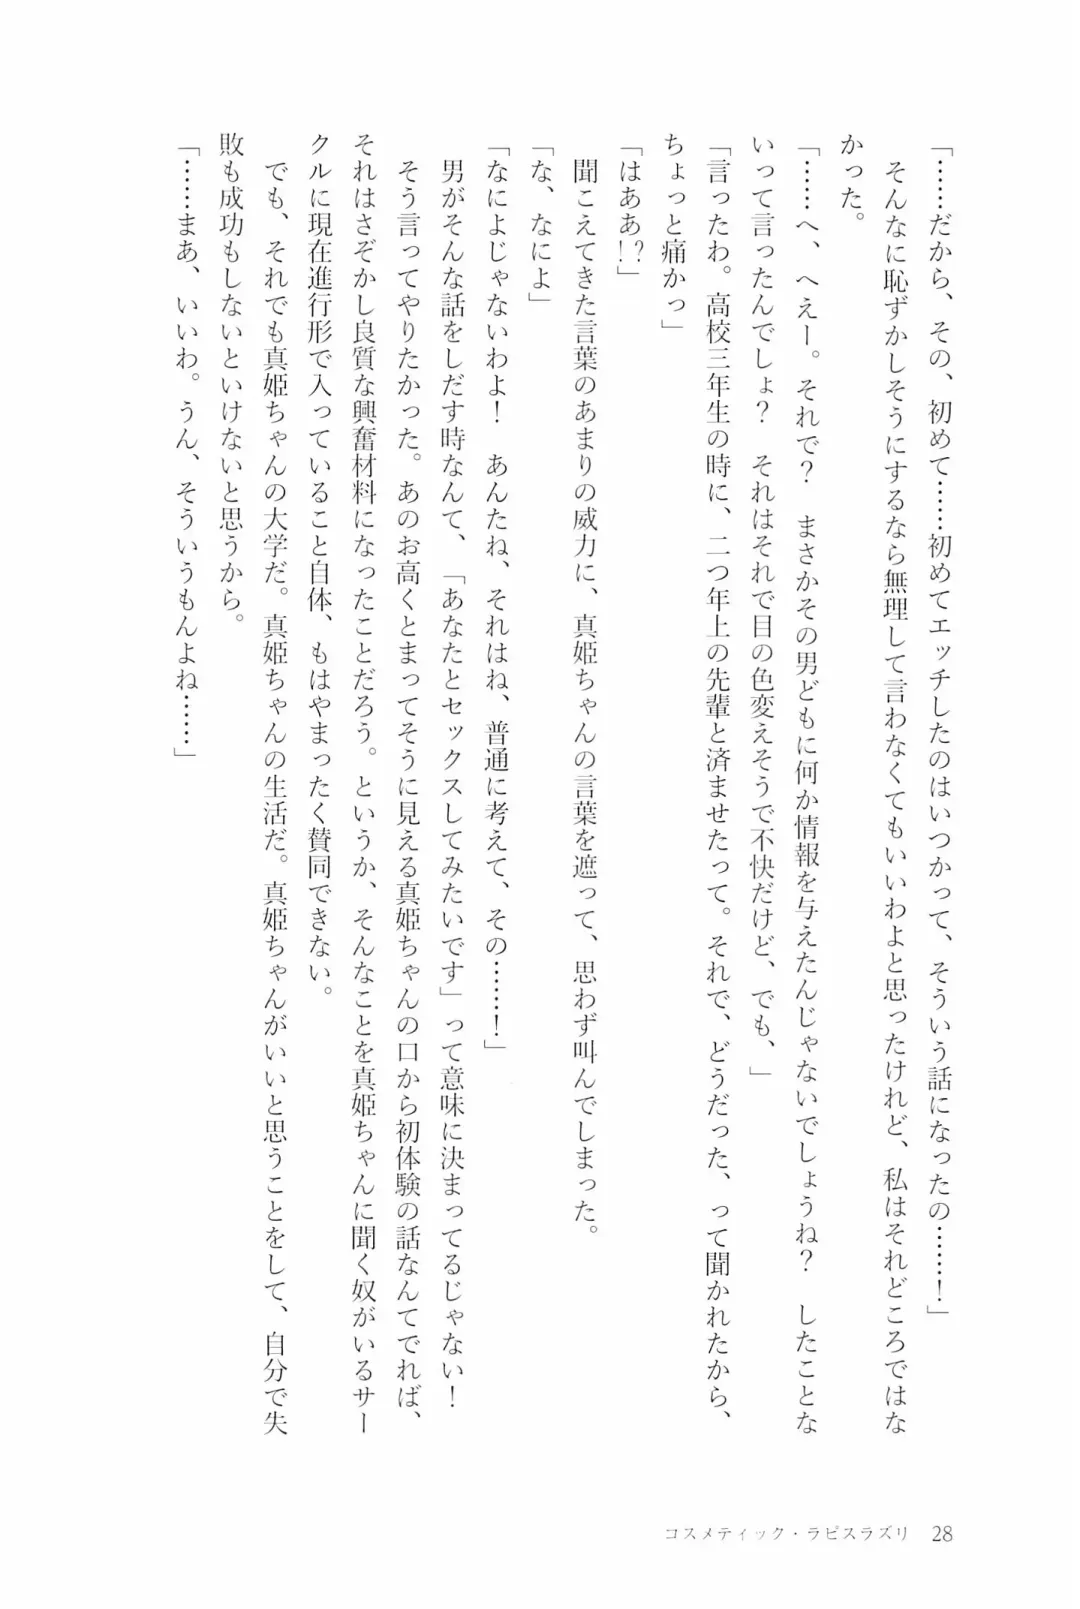 「……だから、その、初めて……初めてエッチしたのはいつかって、そういう話になったの……！」
　そんなに恥ずかしそうにするなら無理して言わなくてもいいわよと思ったけれど、私はそれどころではな
かった。
「……へ、へえー。それで？　まさかその男どもに何か情報を与えたんじゃないでしょうね？　したことな
いって言ったんでしょ？　それはそれで目の色変えそうで不快だけど、でも、」
「言ったわ。高校三年生の時に、二つ年上の先輩と済ませたって。それで、どうだった、って聞かれたから、
ちょっと痛かっ」
「はああ！？」
　聞こえてきた言葉のあまりの威力に、真姫ちゃんの言葉を遮って、思わず叫んでしまった。
「な、なによ」
「なによじゃないわよ！　あんたね、それはね、普通に考えて、その……！」
　男がそんな話をしだす時なんて、「あなたとセックスしてみたいです」って意味に決まってるじゃない！
　そう言ってやりたかった。あのお高くとまってそうに見える真姫ちゃんの口から初体験の話なんてでれば、
それはさぞかし良質な興奮材料になったことだろう。というか、そんなことを真姫ちゃんに聞く奴がいるサー
クルに現在進行形で入っていること自体、もはやまったく賛同できない。
　でも、それでも真姫ちゃんの大学だ。真姫ちゃんの生活だ。真姫ちゃんがいいと思うことをして、自分で失
敗も成功もしないといけないと思うから。
「……まあ、いいわ。うん、そういうもんよね……」
コスメティック・ラピスラズリ　28